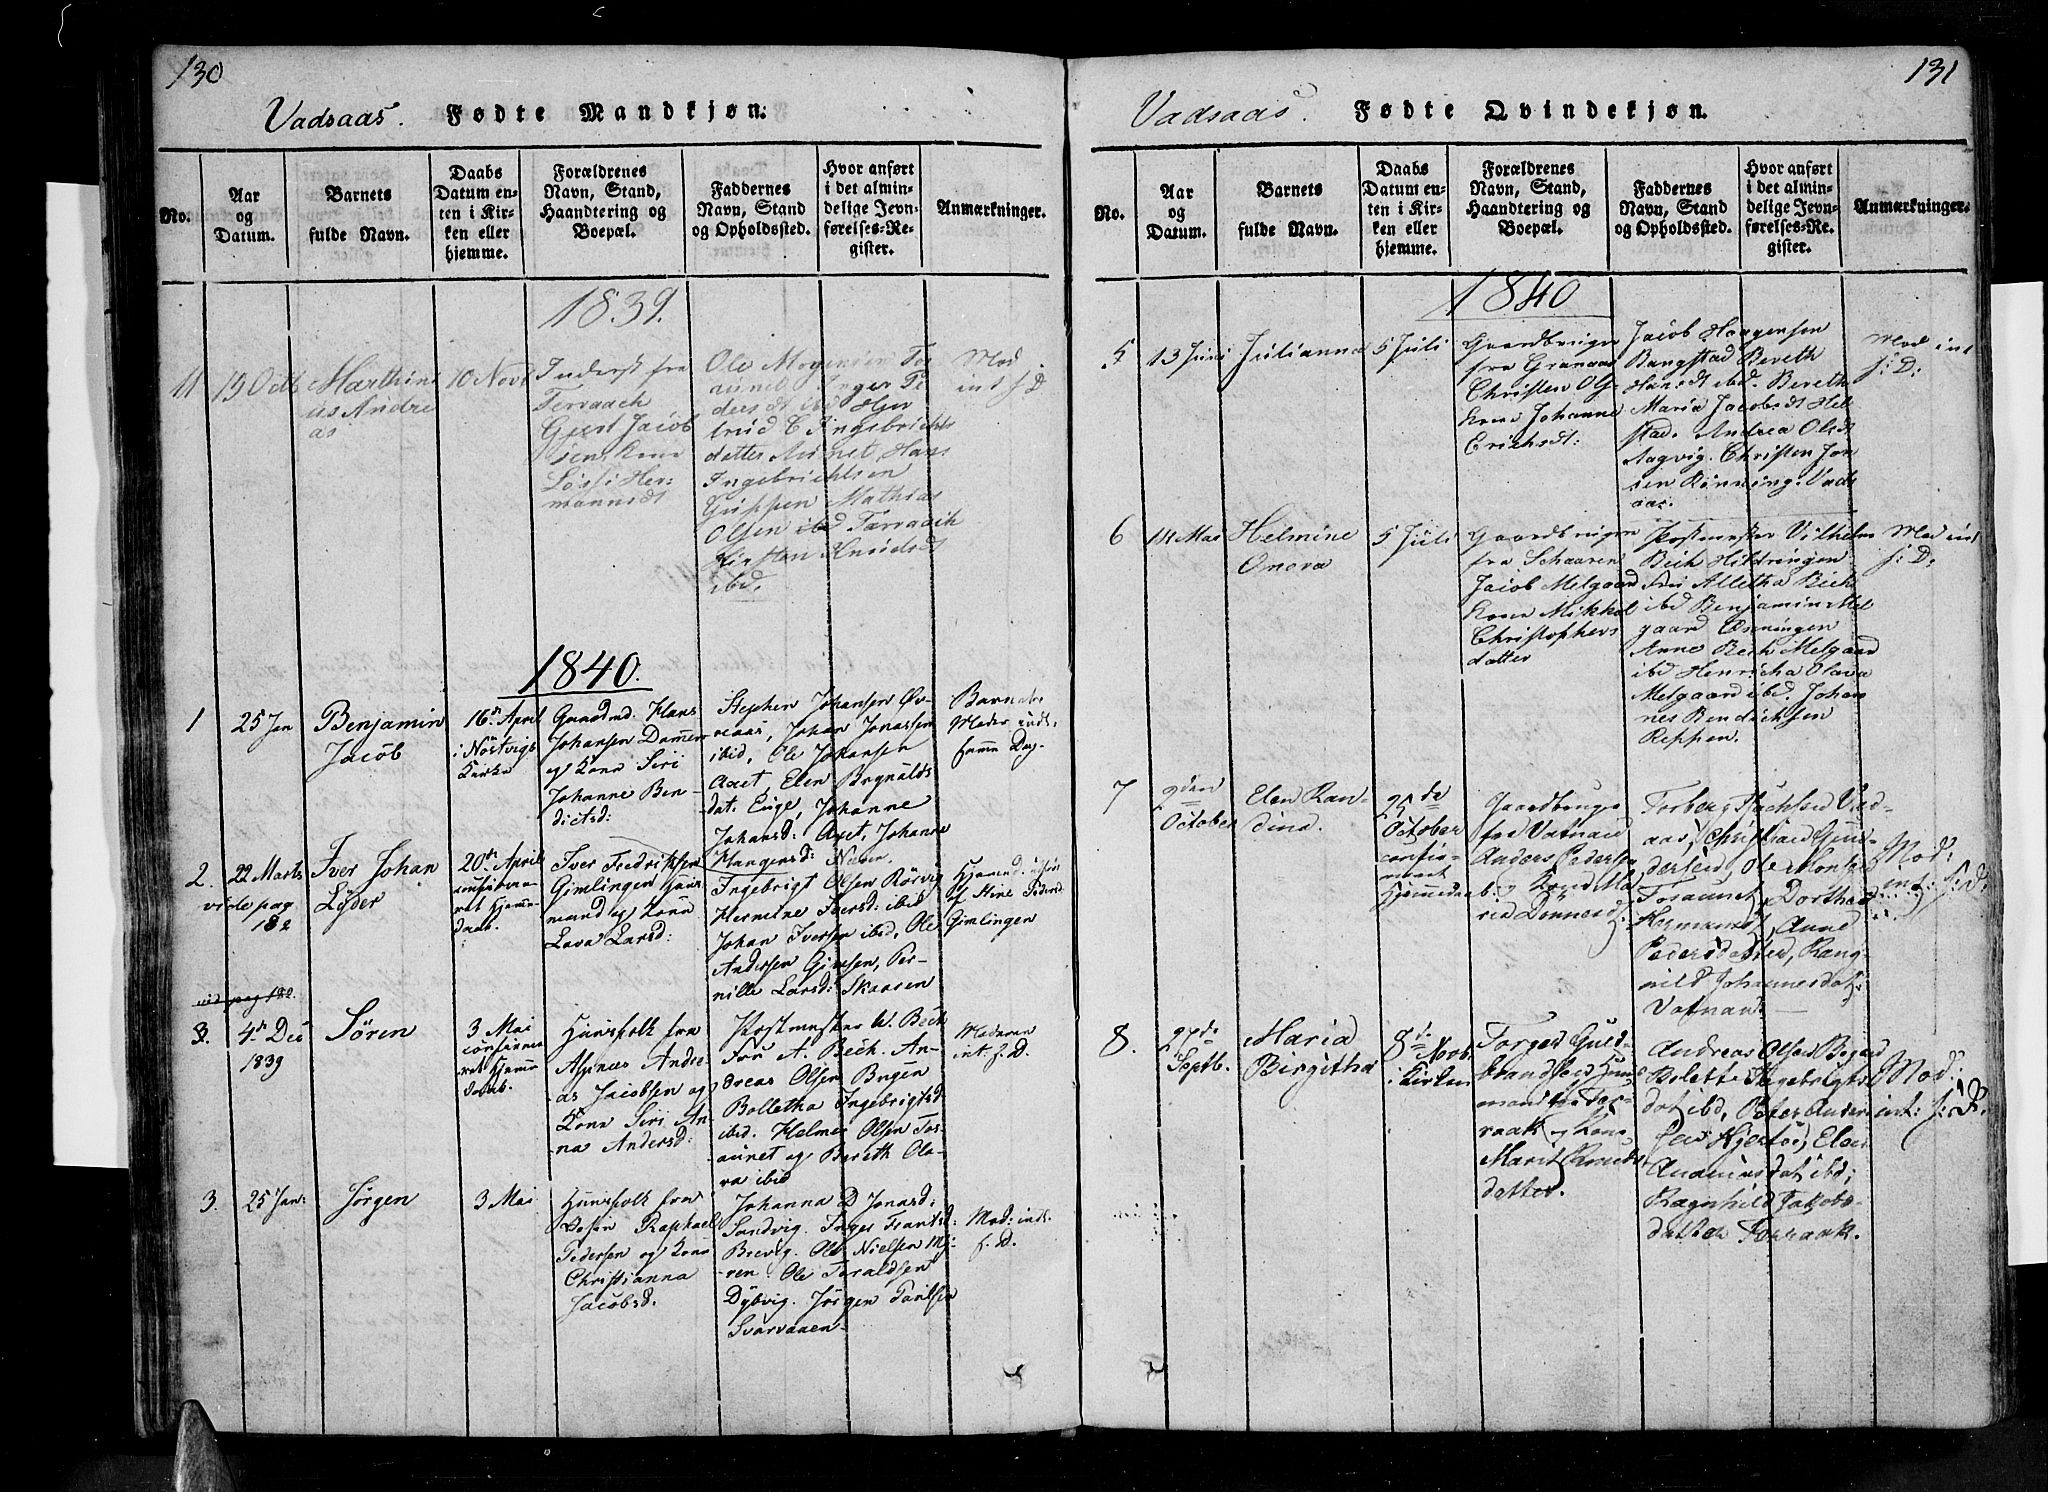 130
Vadsaas. Fødte Mandkjøn.
No.
Aar
og
Datum.
Barnets
fulde Navn.
Daabs
Datum en-
ten i Kir-
ken eller
hjemme.
Forældrenes
Navn, Stand,
Haandtering og
Boepæl.
Faddernes
Navn, Stand
og Opholdssted.
Hvor anført
i det almin-
delige Jevn-
førelses-Re-
gister.
Anmærkninger.
1839.
11
Marthin
us Andre
as
10 Nov
Inderst fra
Terraach
Jacob
sen Kone
Her-
mannsdt
Ole Mogensen
Ingebrichts
datter Hans
Ingebrichtsen
Mathias
Olsen ibd Terraach
Kirsten Knudsdt
ibd.
Mod
ind f. D.
1840.
1
25 Jan
Benjamin
Jacob
16de April
i Nöstvigs
Kirke
Gaardmd. Hans
Johansen
og Kone Siri
Johanne Ben-
dictsd:
Stephen Johansen Öv-
Johan Jonassen
ibid, Ole Johansen
Axet, Elen
dat. Johanne
Johansd: Axet, Johanna
Haagensd:
Barnets
Moder indt.
samme Dag.
2.
22 Marts
vide pag
182
Iver Johan
Lyder
20de April
ret hjemme
daab.
Iver Fredriksen
Gimlingen
mand og Kone
Lava Larsd:
Ingebrigt Olsen Rörvig
Hermine Iversd: ibid
Johan Iversen ibid, Ole
Andersen Per-
nille Larsd: Skaaren
af Stine
Gimlingen
vid pag 182.
3.
4de Dec
1839
Sören
3 Mai
confirme-
ret hjemme
daab.
Huusfolk fra
Alsnes Andre-
as Jacobsen og
Kone Siri An-
na Andersd:
Postmester W. Bech
A. Bech. An-
dreas Olsen
Bolletha Ingebrigtsd
ibid. Helmer Olsen Tos
aunet og Bereth Ola-
va ibid
Moderen
int. f. D.
3.
25 Jan:
Jörgen
3 Mai
Huusfolk fra
Raphael
Pedersen og Kone
Christianna
Jacobsd.
Johanna D Jonasd:
Sandvig. Inger Frantsd:
Brevig. Ole Nielsen
ren. Ole Toraldsen
Dybvig. Jörgen
Svarvaaen
Mod: indt.
f. D.
131
Vadsaas. Fødte Qvindekjøn.
No.
Aar
og
Datum.
Barnets
fulde Navn.
Daabs
Datum en-
ten i Kir-
ken eller
hjemme.
Forældrenes
Navn, Stand,
Haandtering og
Boepæl.
Faddernes
Navn, Stand
og Opholdssted.
Hvor anført
i det almin-
delige Jevn-
førelses-Re-
gister.
Anmærkninger.
1840
5
13 Juni
Julianna
5 Juli
Gaardbruger
fra Granaas
Christen Ol-
Kone Johanne
Erichsdt:
Jacob Haagensen
Bangstad Bereth
Hansdt ibd. Bereth
Maria Jacobsdt Hel
stad. Andrea Olsdt
Aagvig. Christen Jon
sen Rönning. Vads
aas.
Mod int
f: D:
6
14 Mai
Helmine
5 Juli
Gaardbruger
fra Schaaren
Jacob Melgaard
Kone Mikkel
Christophers
datter
Postmester Vilhelm
Bech Hildringen
Alletha Bech
ibd Benjamin Mel
gaard
Anne Bech Melgaard
ibd Henricha Olava
Melgaard ibd. Johan
nes Bendichsen
Reppen.
Mod ind
f: D:
7
2den
October
Elen Ran-
dina.
25de
October
confir-
meret
Hjemmedaab
Gaardbruger
fra Vatnan
Anders Pedersen
og Kone Ma-
ren
Torberg Vad-
aas, Christian Gun-
dersen, Ole
Tosaunet, Dorthea
Hermansd, Anne
Pedersdatter, Rang-
nild Johannesdat:
Vatnan
Mod:
int: f: D:
8.
27de
Septb.
Maria
Birgitha
8de Nob.
i Kirken
Torger Guld-
brandsen Huus
mand fra Ter-
raak og Kone
Marit Knuds-
datter.
Andreas Olsen
Bolette Ingebrigts
dat ibd, Peter Ander
sen Hjortöe, Elen
Andreasdat ibd;
Ragnhild Jakobs-
datter Terraak.
Mod:
int: f: D.